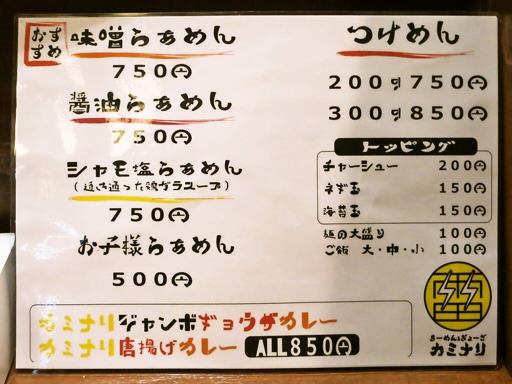 おすすめ
味噌らぁめん
750円
醤油らぁめん
750円
シャモ塩らぁめん
(透き通った鶏ガラスープ)
750円
お子様らぁめん
500円
つけめん
200g 750円
300g 850円
トッピング
チャーシュー 200円
ネギ玉 150円
海苔玉 150円
麺の大盛り 100円
ご飯 大・中・小 100円
カミナリジャンボギョウザカレー
カミナリ唐揚げカレー ALL850円
らーめん&ぎょーざ
カミナリ